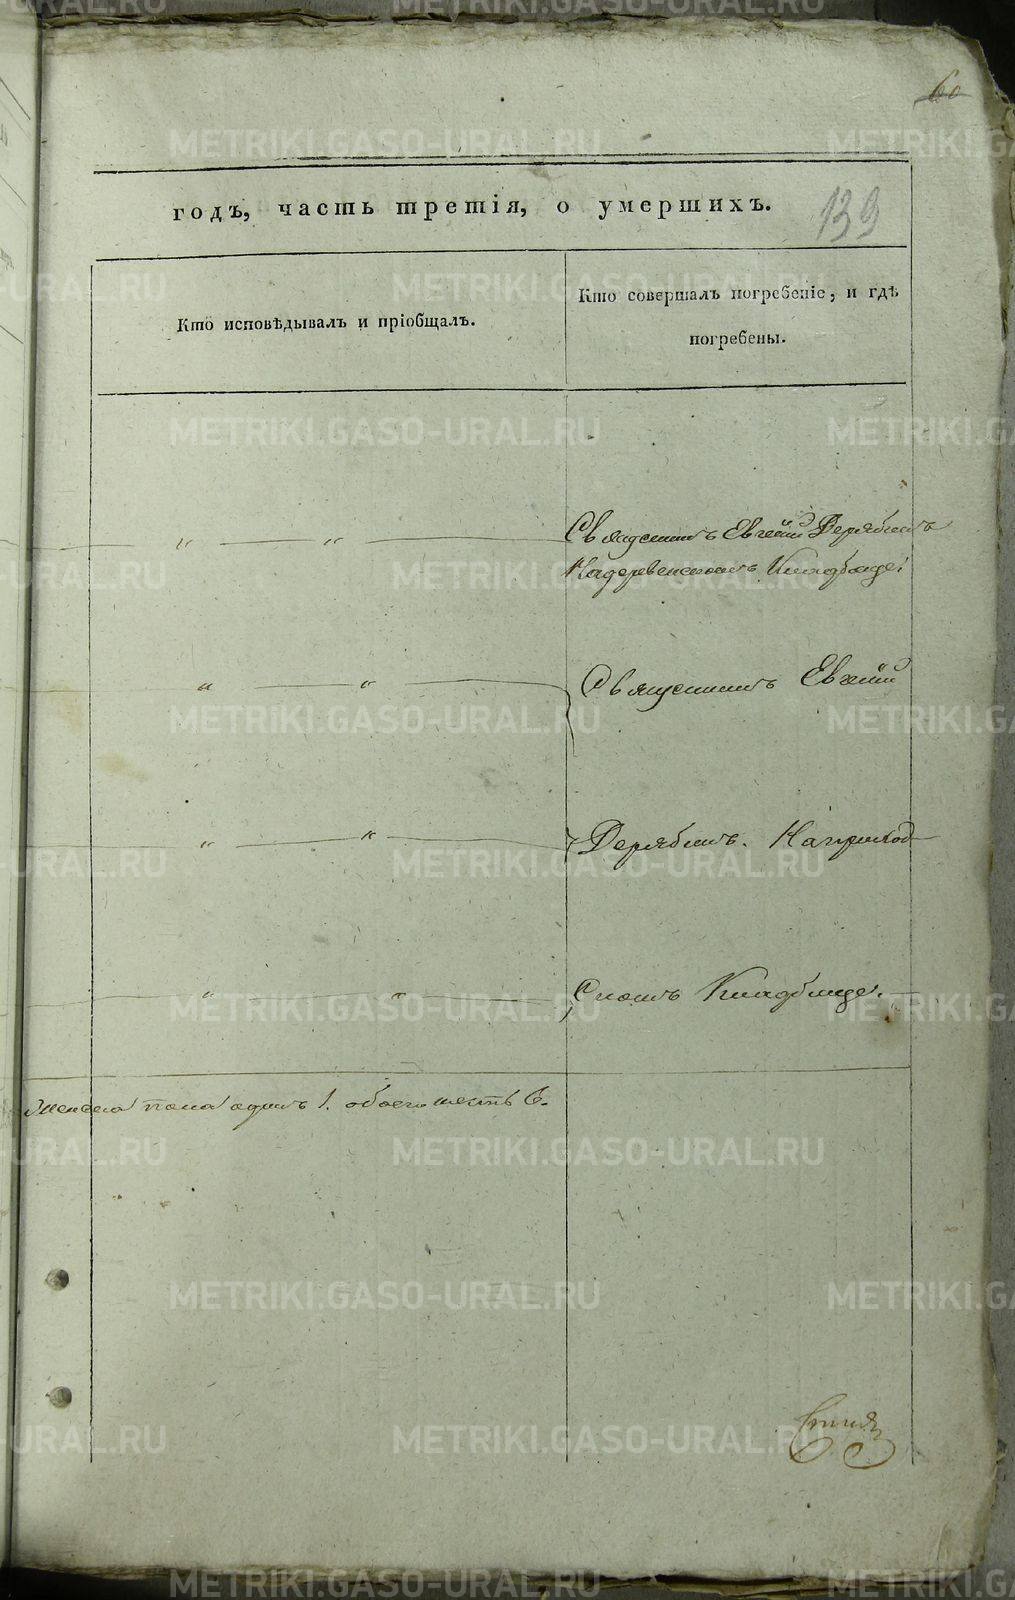 60
139
годъ, часть третія, о умершихъ.
Кто исповѣдывалъ и пріобщалъ.
Кто совершалъ погребеніе, и гдѣ
погребены.
" — " — Священникъ Евгеній Дерябинъ
На деревенскомъ Кладбище.
" — " — Священникъ Евгеній
" — " — Дерябинъ. На приход-
" — " — скомъ Кладбище.
Женска пола одинъ 1. обоего шесть 6.
METRIKI.GASO-URAL.RU